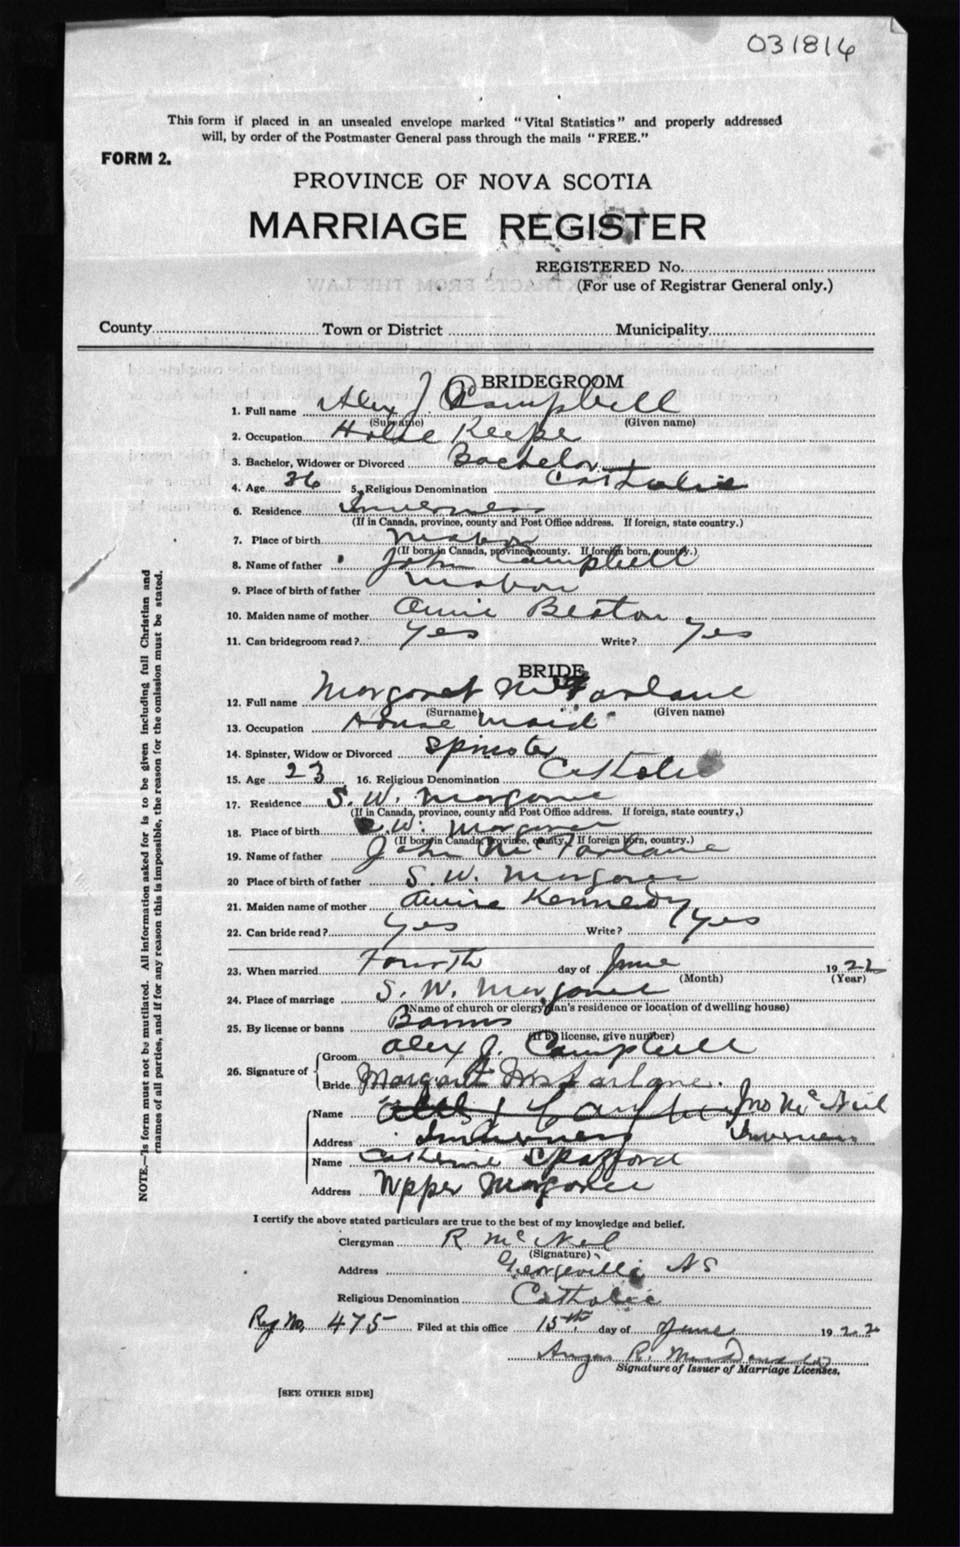 031816
This form if placed in an unsealed envelope marked "Vital Statistics" and properly addressed
will, by order of the Postmaster General pass through the mails "FREE."
FORM 2.
PROVINCE OF NOVA SCOTIA
MARRIAGE REGISTER
REGISTERED No.
(For use of Registrar General only.)
County Town or District Municipality
BRIDEGROOM
1. Full name Alex J. Campbell
(Surname) (Given name)
2. Occupation House Keeper
3. Bachelor, Widower or Divorced Bachelor
4. Age 36 5. Religious Denomination Catholic
6. Residence Inverness
(If in Canada, province, county and Post Office address. If foreign, state country.)
7. Place of birth Mabou
(If born in Canada, province, county. If foreign born, country.)
8. Name of father John Campbell
9. Place of birth of father Mabou
10. Maiden name of mother Annie Beaton
11. Can bridegroom read? Yes Write? Yes
BRIDE
12. Full name Margaret McFarlane
(Surname) (Given name)
13. Occupation House maid
14. Spinster, Widow or Divorced Spinster
15. Age 23 16. Religious Denomination Catholic
17. Residence S. W. Margaree
(If in Canada, province, county and Post Office address. If foreign, state country.)
18. Place of birth S. W. Margaree
(If born in Canada, province, county. If foreign born, country.)
19. Name of father John McFarlane
20 Place of birth of father S. W. Margaree
21. Maiden name of mother Annie Kennedy
22. Can bride read? Yes Write? Yes
23. When married Fourth day of June 1922
(Month) (Year)
24. Place of marriage S. W. Margaree
(Name of church or clergyman's residence or location of dwelling house)
25. By license or banns Banns
(If by license, give number)
26. Signature of Groom Alex J. Campbell
Bride Margaret McFarlane.
Name Jno McNeil
Address Inverness Inverness
Name Catherine Spafford
Address Upper Margaree
I certify the above stated particulars are true to the best of my knowledge and belief.
Clergyman R McNeil
(Signature)
Address Georgeville NS
Religious Denomination Catholic
Reg No, 475 Filed at this office 15th day of June 1922
Angus R. MacDonald
Signature of Issuer of Marriage Licenses.
[SEE OTHER SIDE]
NOTE.—This form must not be mutilated. All information asked for is to be given including full Christian and
surnames of all parties, and if for any reason this is impossible, the reason for the omission must be stated.